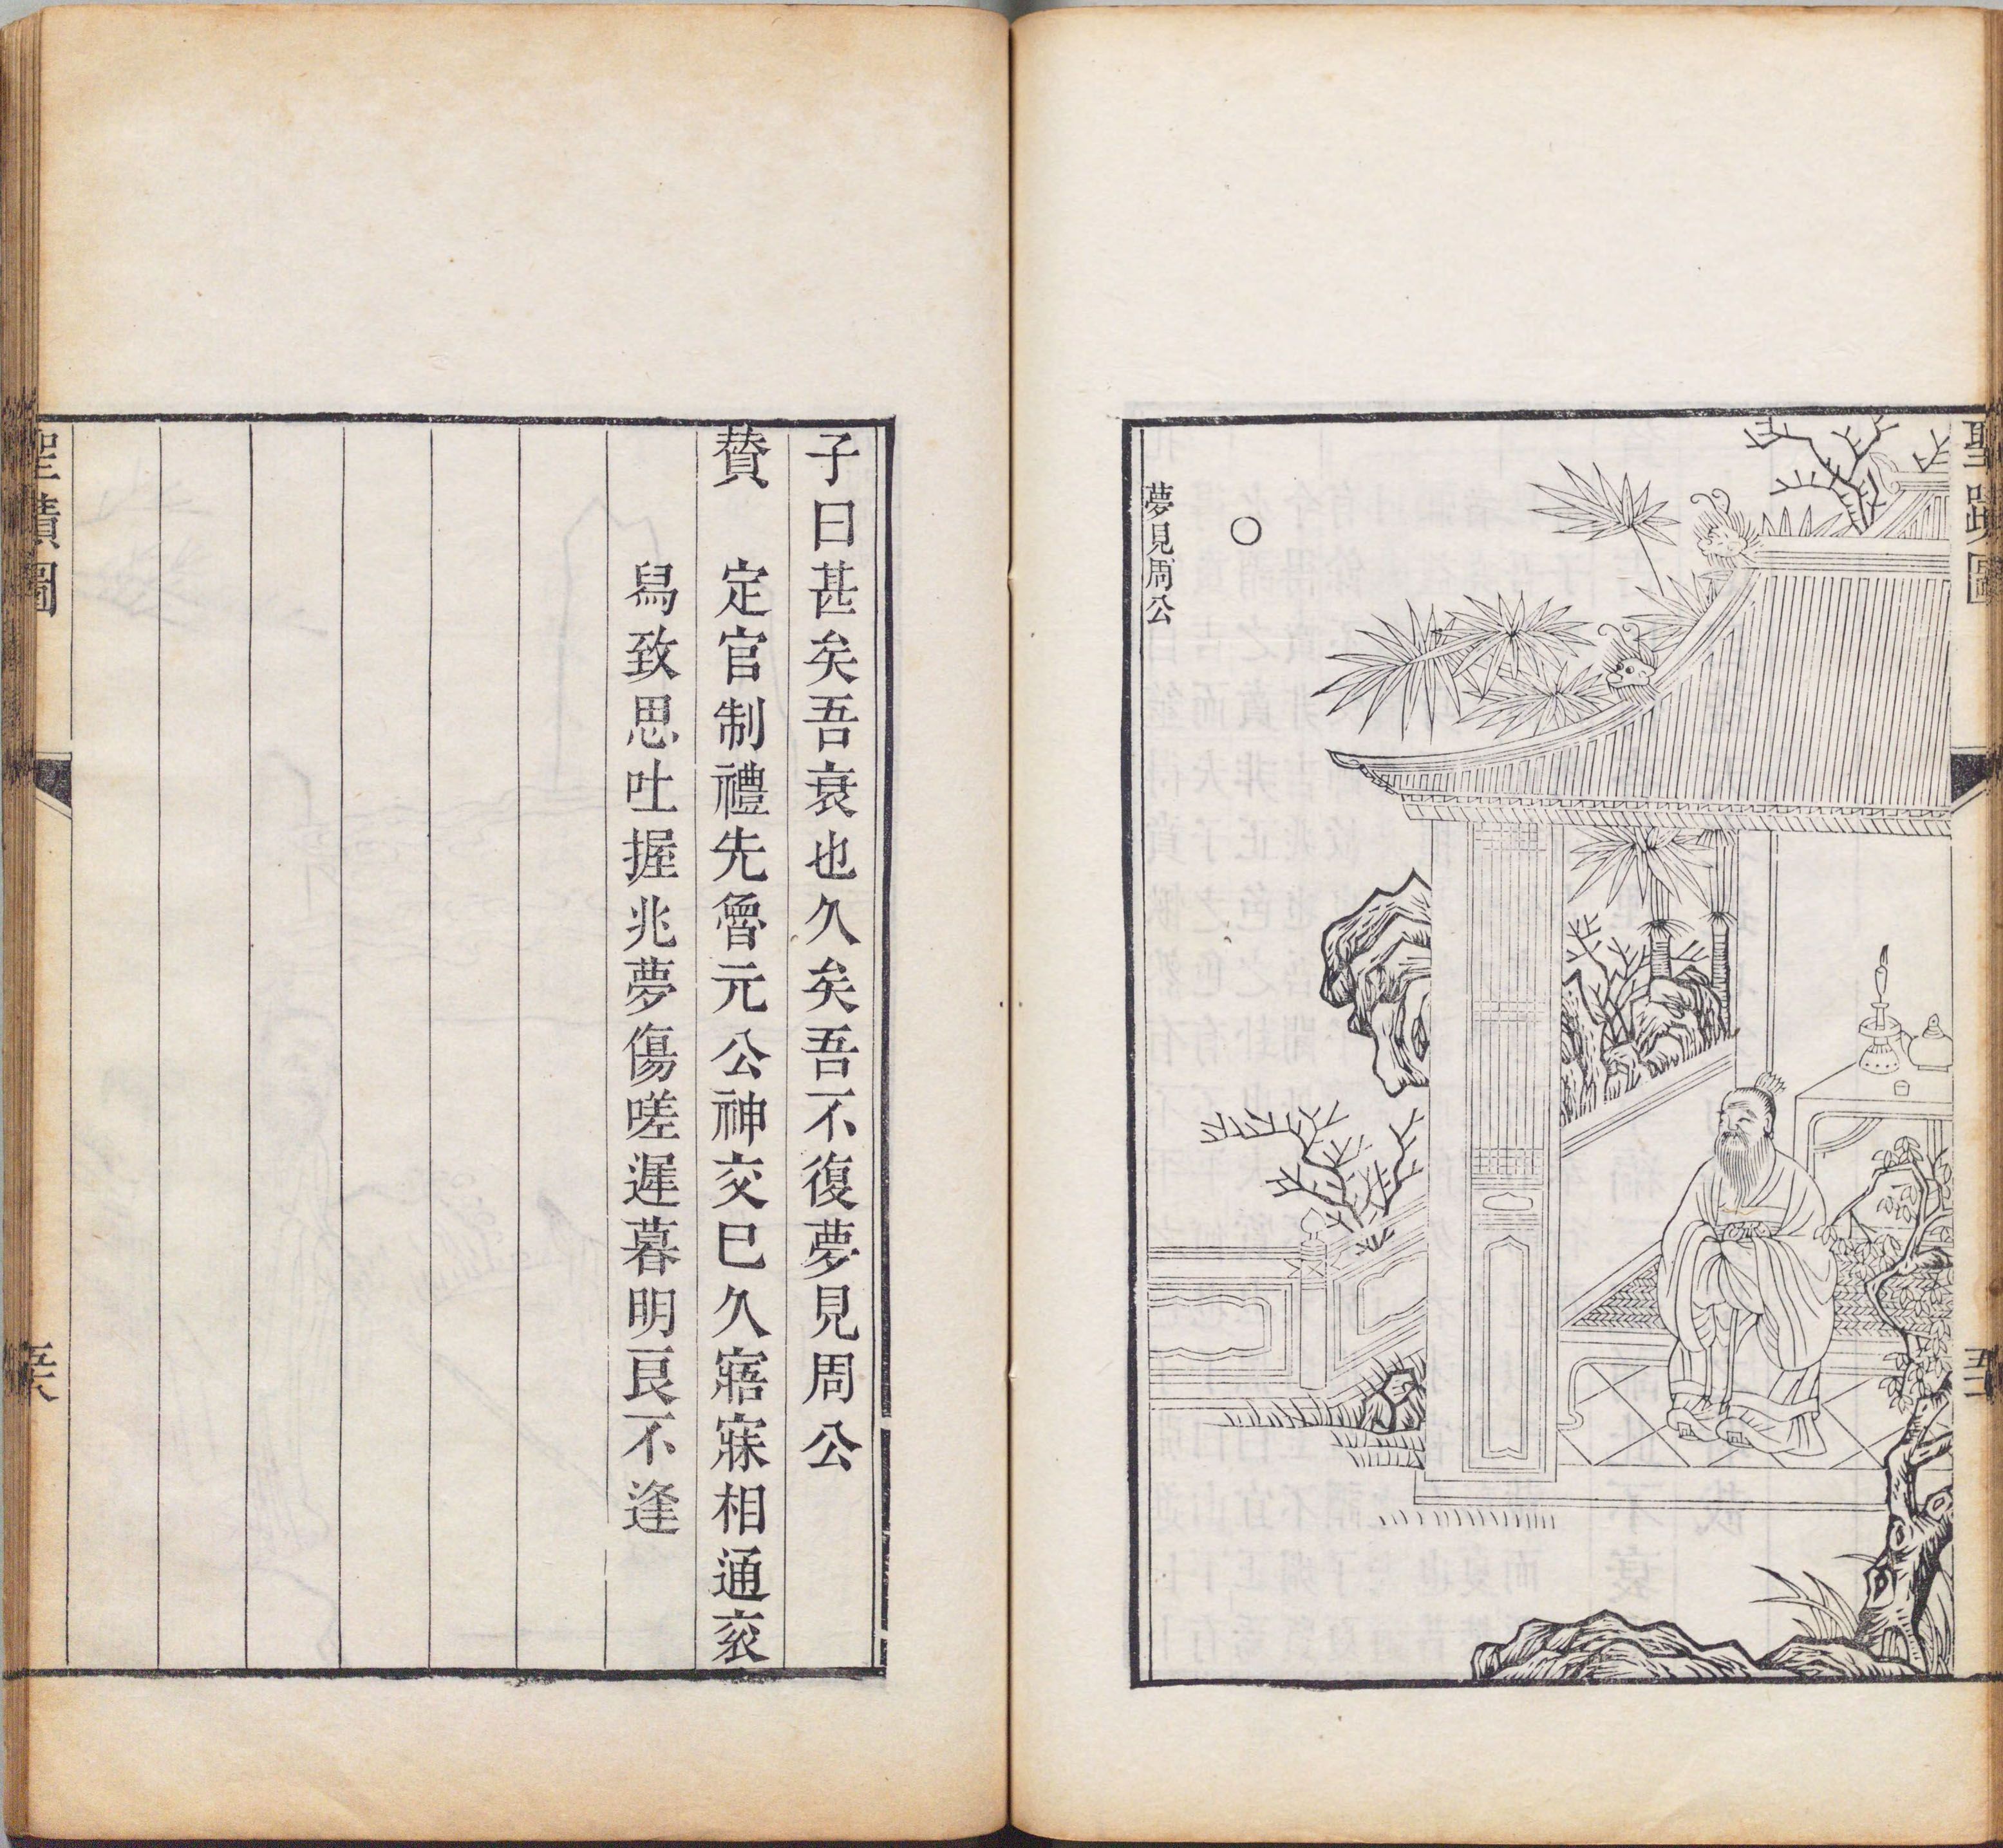 聖蹟圖
夢見周公
子曰甚矣吾衰也久矣吾不復夢見周公
賛 定官制禮先魯元公神交已久寤寐相通衮
舃致思吐握兆夢傷嗟遲暮明良不逢
聖蹟圖